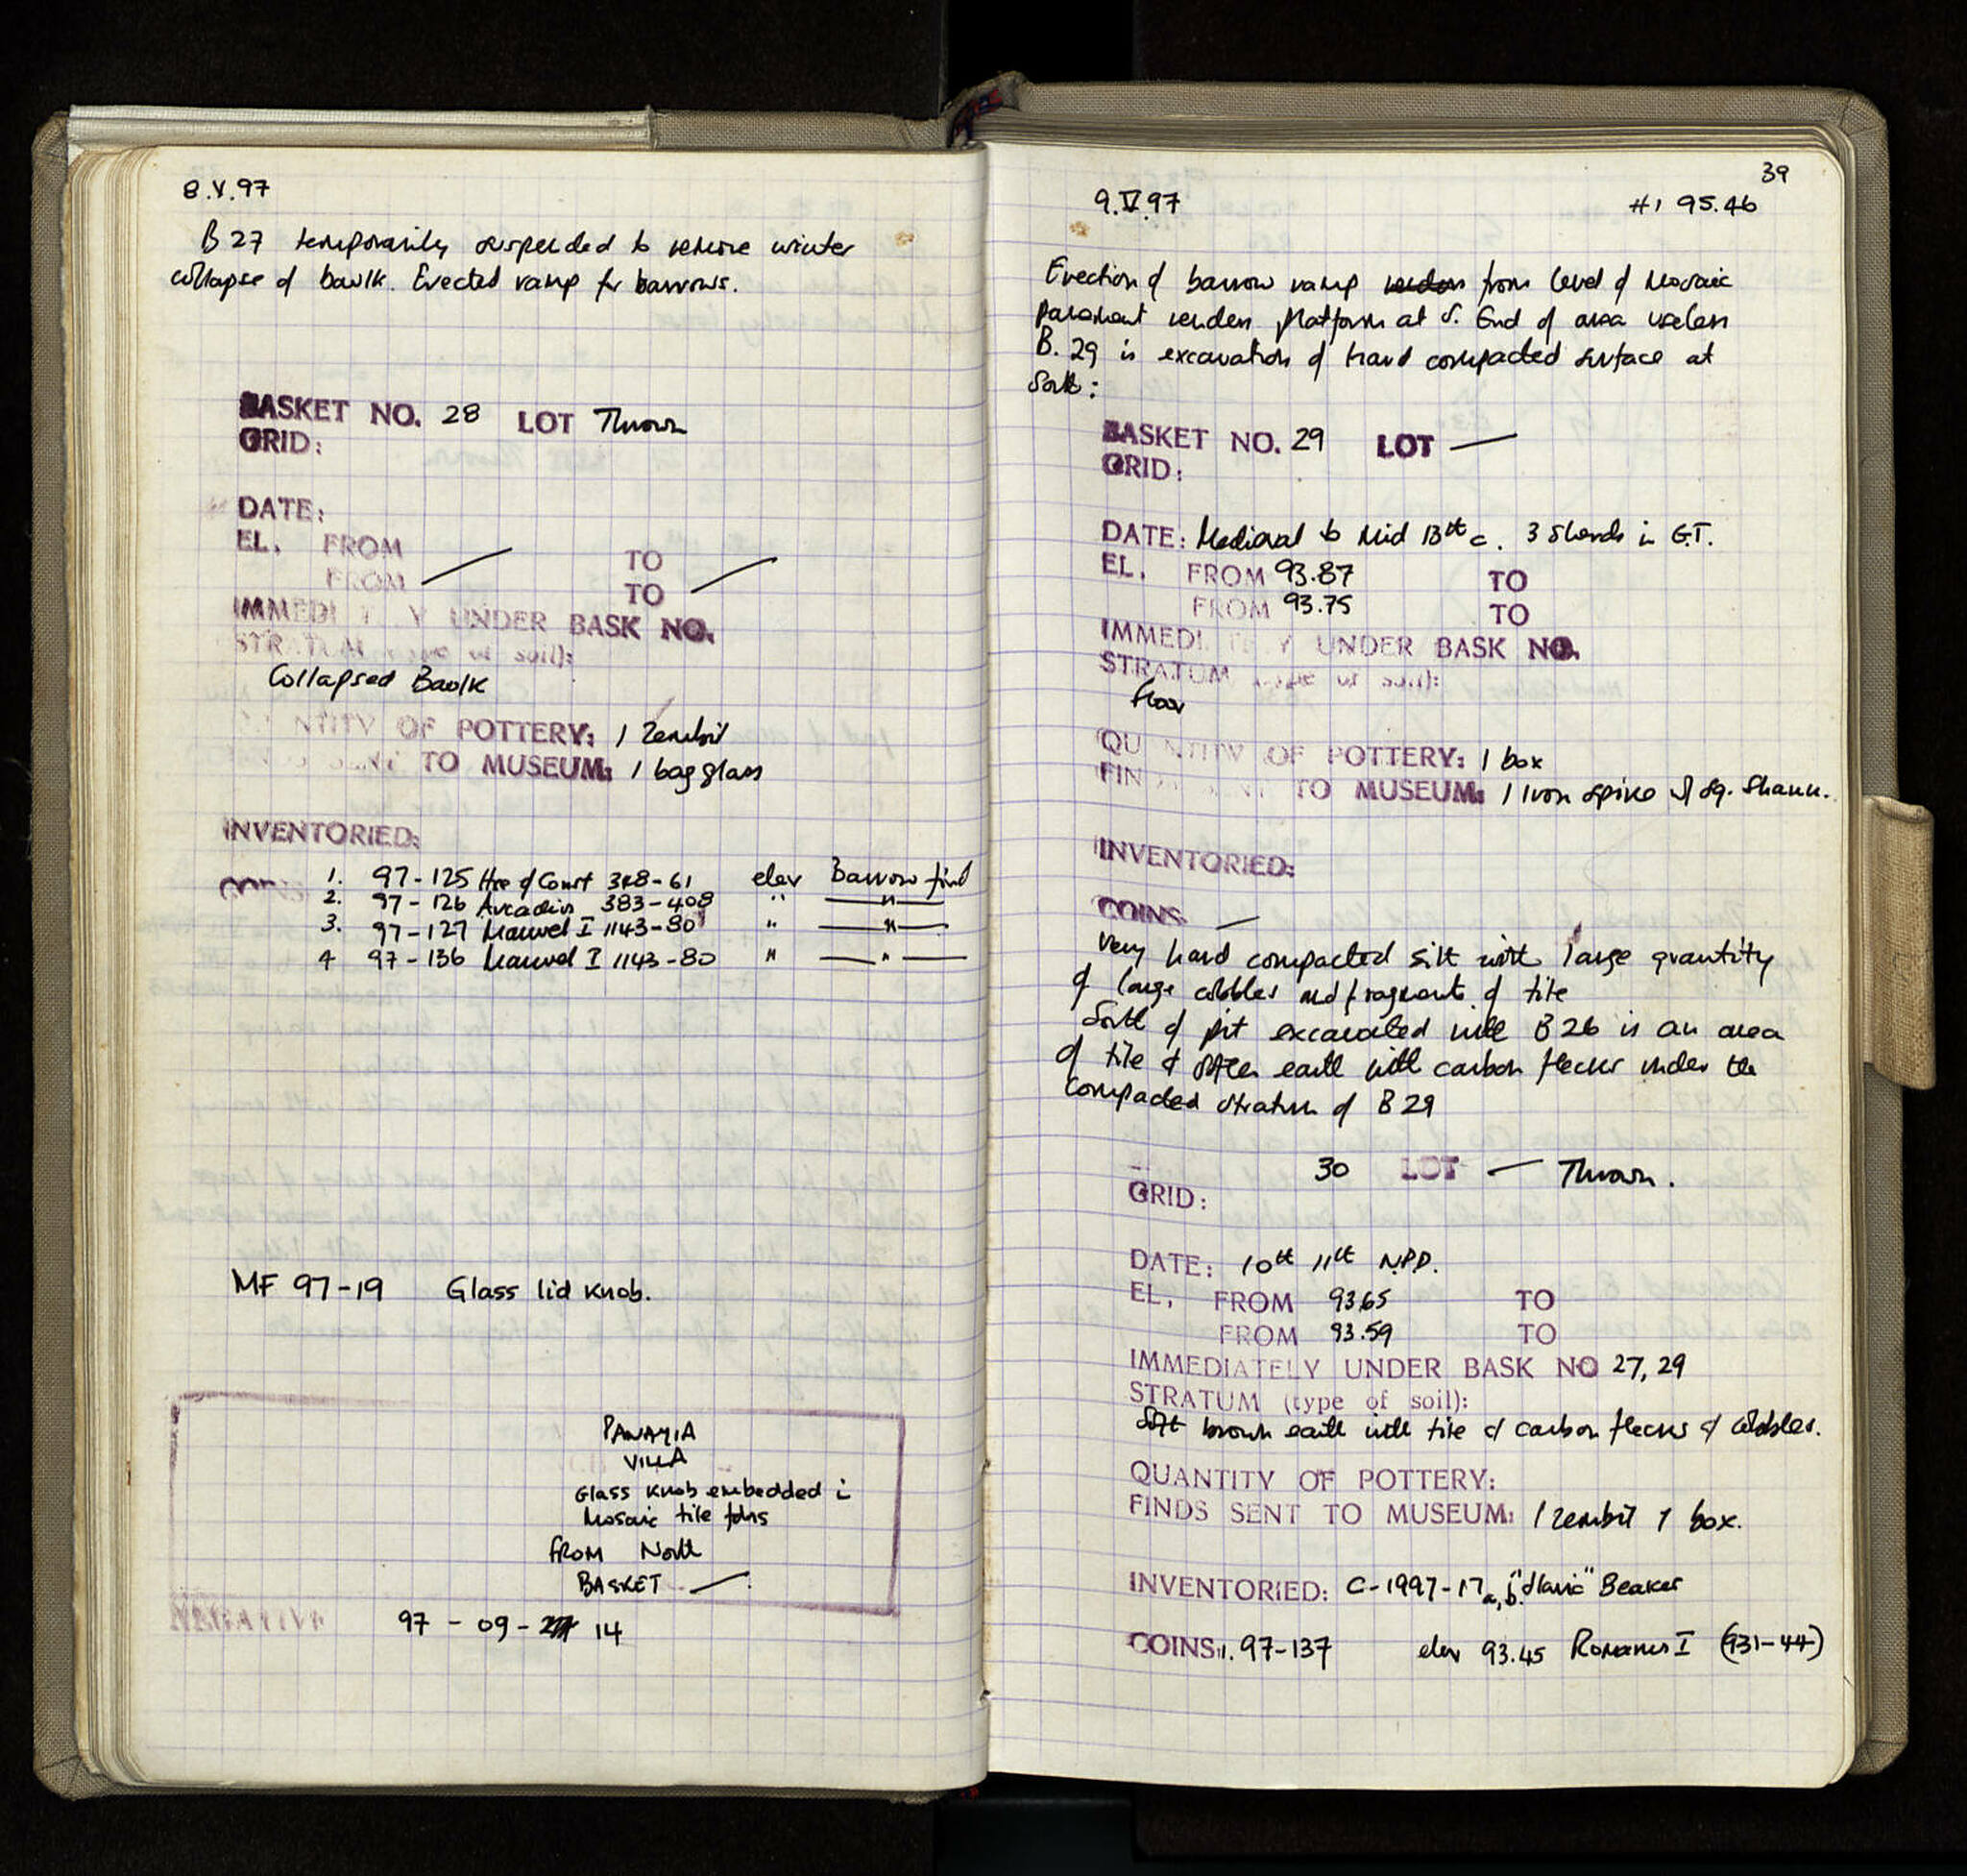 8.V.97
B 27 temporarily suspended to remove winter
collapse of baulk. Erected ramp for barrows.
BASKET NO. 28 LOT Thrown
GRID:
DATE:
EL. FROM TO
FROM TO
IMMEDI Y UNDER BASK NO.
STRATUM soil):
Collapsed Baulk
NTITY OF POTTERY: 1 Zembil
SENT TO MUSEUM: 1 bag glass
INVENTORIED:
1. 97-125 Hse of Const 348-61 elev Barrow find
2. 97-126 Arcadius 383-408 " "
3. 97-127 Manuel I 1143-80 " "
4 97-136 Manuel I 1143-80 " "
MF 97-19 Glass lid knob.
PANAYIA
VILLA
Glass knob embedded in
Mosaic tile fdns
FROM North
BASKET —
97-09- 14
39
9.V.97 #1 95.46
Erection of barrow ramp from level of Mosaic
pavement renders platform at S. End of area useless
B. 29 is excavation of hard compacted surface at
South:
BASKET NO. 29 LOT —
GRID:
DATE: Medieval to Mid 13th c. 3 sherds in G.T.
EL. FROM 93.87 TO
FROM 93.75 TO
IMMEDI TE Y UNDER BASK NO.
STRATUM (type of soil):
floor
QU NTITY OF POTTERY: 1 box
FIN SENT TO MUSEUM: 1 Iron spike w/ sq. shank.
INVENTORIED:
COINS —
Very hard compacted silt with large quantity
of large cobbles and fragments of tile
South of pit excavated with B26 is an area
of tile & softer earth with carbon flecks under the
compacted stratum of B29
30 LOT — Thrown.
GRID:
DATE: 10th 11th N.P.D.
EL. FROM 93.65 TO
FROM 93.59 TO
IMMEDIATELY UNDER BASK NO 27, 29
STRATUM (type of soil):
Soft brown earth with tile & carbon flecks & cobbles.
QUANTITY OF POTTERY:
FINDS SENT TO MUSEUM: 1 zembil 1 box.
INVENTORIED: C-1997-17a,b. "Slavic" Beaker
COINS: 1. 97-137 elev 93.45 Romanus I (931-44)